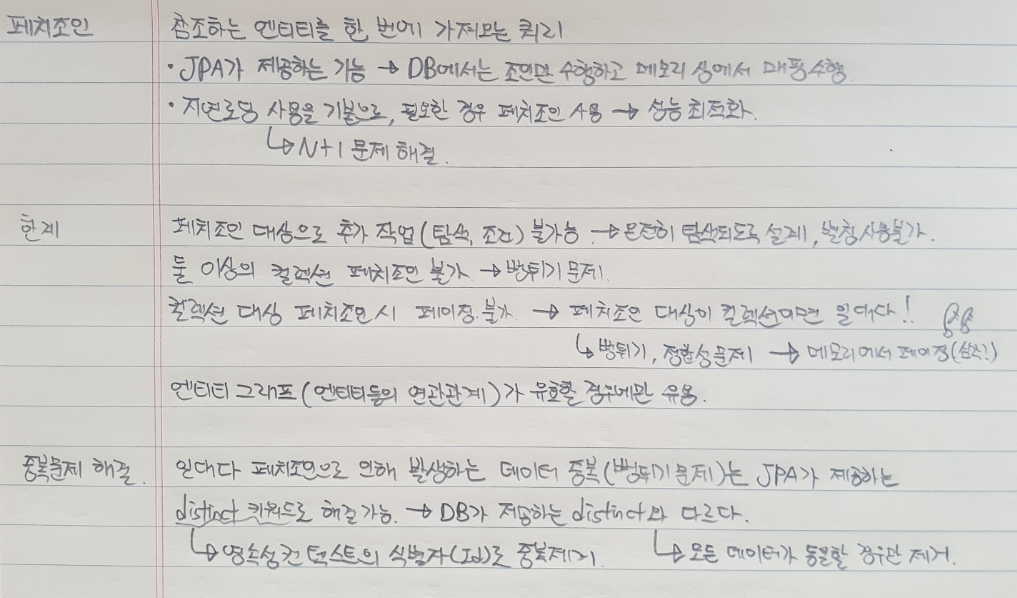 페치조인 참조하는 엔티티를 한 번에 가져오는 쿼리
· JPA가 제공하는 기능 → DB에서는 조인만 수행하고 메모리 상에서 매핑수행.
· 지연로딩 사용을 기본으로, 필요한 경우 페치조인 사용 → 성능 최적화.
↳ N+1 문제 해결.
한계 페치조인 대상으로 추가 작업(탐색, 조건) 불가능 → 온전히 탐색되도록 설계, 별칭사용불가.
둘 이상의 컬렉션 페치조인 불가 → 뻥튀기 문제.
컬렉션 대상 페치조인시 페이징 불가 → 페치조인 대상이 컬렉션이면 일대다!
↳ 뻥튀기, 정합성문제 → 메모리에서 페이징(심각!)
엔티티 그래프(엔티티들의 연관관계)가 유효할 경우에만 유용.
중복문제 해결. 일대다 페치조인으로 인해 발생하는 데이터 중복(뻥튀기 문제)는 JPA가 제공하는
distinct 키워드로 해결 가능. → DB가 제공하는 distinct와 다르다.
↳ 영속성 컨텍스트의 식별자(Id)로 중복제거. ↳ 모든 데이터가 동일할 경우만 제거.